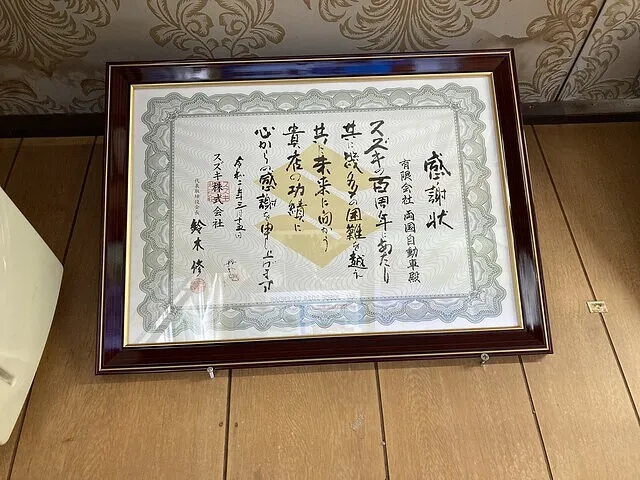 感謝状
有限会社 両国自動車殿
スズキの百周年にあたり
共に幾多の困難を越え
共に未来に向かう
貴店の功績に
心からの感謝を申し上げます
令和二年三月十五日
スズキ株式会社
代表取締役会長
鈴木 修